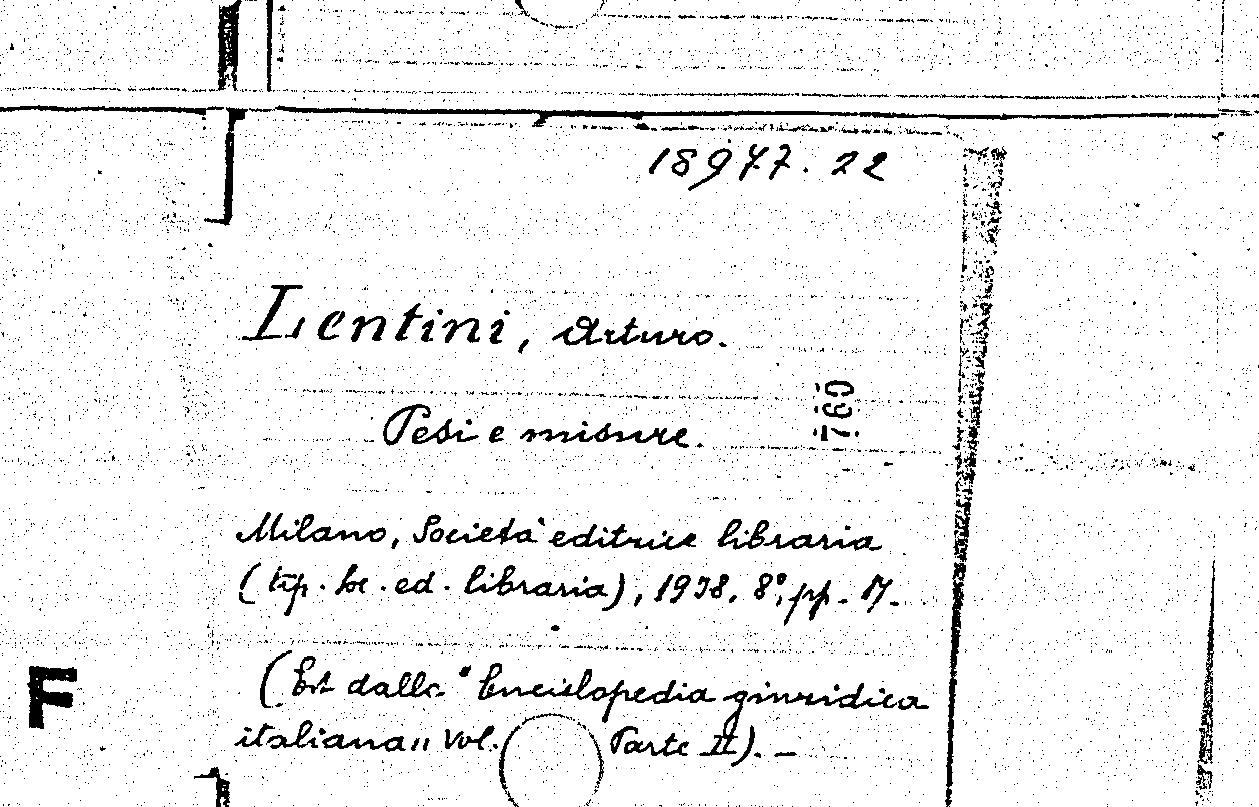 18977.22
Lentini, Arturo.
Pesi e misure.
760
Milano, Società editrice libraria
(tip. soc. ed. libraria), 1938. 8°, pp. 17.
(Est. dalla "Enciclopedia giuridica
italiana" Vol. Parte II). —
F